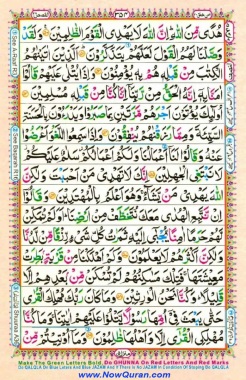 القصص ٢٨
٣٥٣
هُدًى مِّنَ اللّٰهِ اِنَّ اللّٰهَ لَا يَهْدِى الْقَوْمَ الظّٰلِمِيْنَ وَلَقَدْ
وَصَّلْنَا لَهُمُ الْقَوْلَ لَعَلَّهُمْ يَتَذَكَّرُوْنَ اَلَّذِيْنَ اٰتَيْنٰهُمُ
الْكِتٰبَ مِنْ قَبْلِهٖ هُمْ بِهٖ يُؤْمِنُوْنَ وَاِذَا يُتْلٰى عَلَيْهِمْ قَالُوْٓا
اٰمَنَّا بِهٖٓ اِنَّهُ الْحَقُّ مِنْ رَّبِّنَآ اِنَّا كُنَّا مِنْ قَبْلِهٖ مُسْلِمِيْنَ
اُولٰٓئِكَ يُؤْتَوْنَ اَجْرَهُمْ مَّرَّتَيْنِ بِمَا صَبَرُوْا وَيَدْرَءُوْنَ بِالْحَسَنَةِ
السَّيِّئَةَ وَمِمَّا رَزَقْنٰهُمْ يُنْفِقُوْنَ وَاِذَا سَمِعُوا اللَّغْوَ اَعْرَضُوْا
عَنْهُ وَقَالُوْا لَنَآ اَعْمَالُنَا وَلَكُمْ اَعْمَالُكُمْ سَلٰمٌ عَلَيْكُمْ
لَا نَبْتَغِى الْجٰهِلِيْنَ اِنَّكَ لَا تَهْدِيْ مَنْ اَحْبَبْتَ وَلٰكِنَّ
اللّٰهَ يَهْدِيْ مَنْ يَّشَآءُ وَهُوَ اَعْلَمُ بِالْمُهْتَدِيْنَ وَقَالُوْٓا
اِنْ نَّتَّبِعِ الْهُدٰى مَعَكَ نُتَخَطَّفْ مِنْ اَرْضِنَا اَوَلَمْ نُمَكِّنْ
لَّهُمْ حَرَمًا اٰمِنًا يُّجْبٰٓى اِلَيْهِ ثَمَرٰتُ كُلِّ شَيْءٍ رِّزْقًا مِّنْ لَّدُنَّا
وَلٰكِنَّ اَكْثَرَهُمْ لَا يَعْلَمُوْنَ وَكَمْ اَهْلَكْنَا مِنْ قَرْيَةٍ بَطِرَتْ
مَعِيْشَتَهَا فَتِلْكَ مَسٰكِنُهُمْ لَمْ تُسْكَنْ مِّنْ بَعْدِهِمْ اِلَّا
قَلِيْلًا وَكُنَّا نَحْنُ الْوٰرِثِيْنَ وَمَا كَانَ رَبُّكَ مُهْلِكَ الْقُرٰى
حَتّٰى يَبْعَثَ فِيْٓ اُمِّهَا رَسُوْلًا يَّتْلُوْا عَلَيْهِمْ اٰيٰتِنَا وَمَا كُنَّا
مُهْلِكِى الْقُرٰٓى اِلَّا وَاَهْلُهَا ظٰلِمُوْنَ وَمَآ اُوْتِيْتُمْ مِّنْ
Make The Green Letters Bold. Do GHUNNA On Red Letters And Red Marks
Do QALQLA On Blue Letters And Blue JAZAM And If There Is No JAZAM In Condition Of Stoping Do QALQLA
www.NowQuran.com